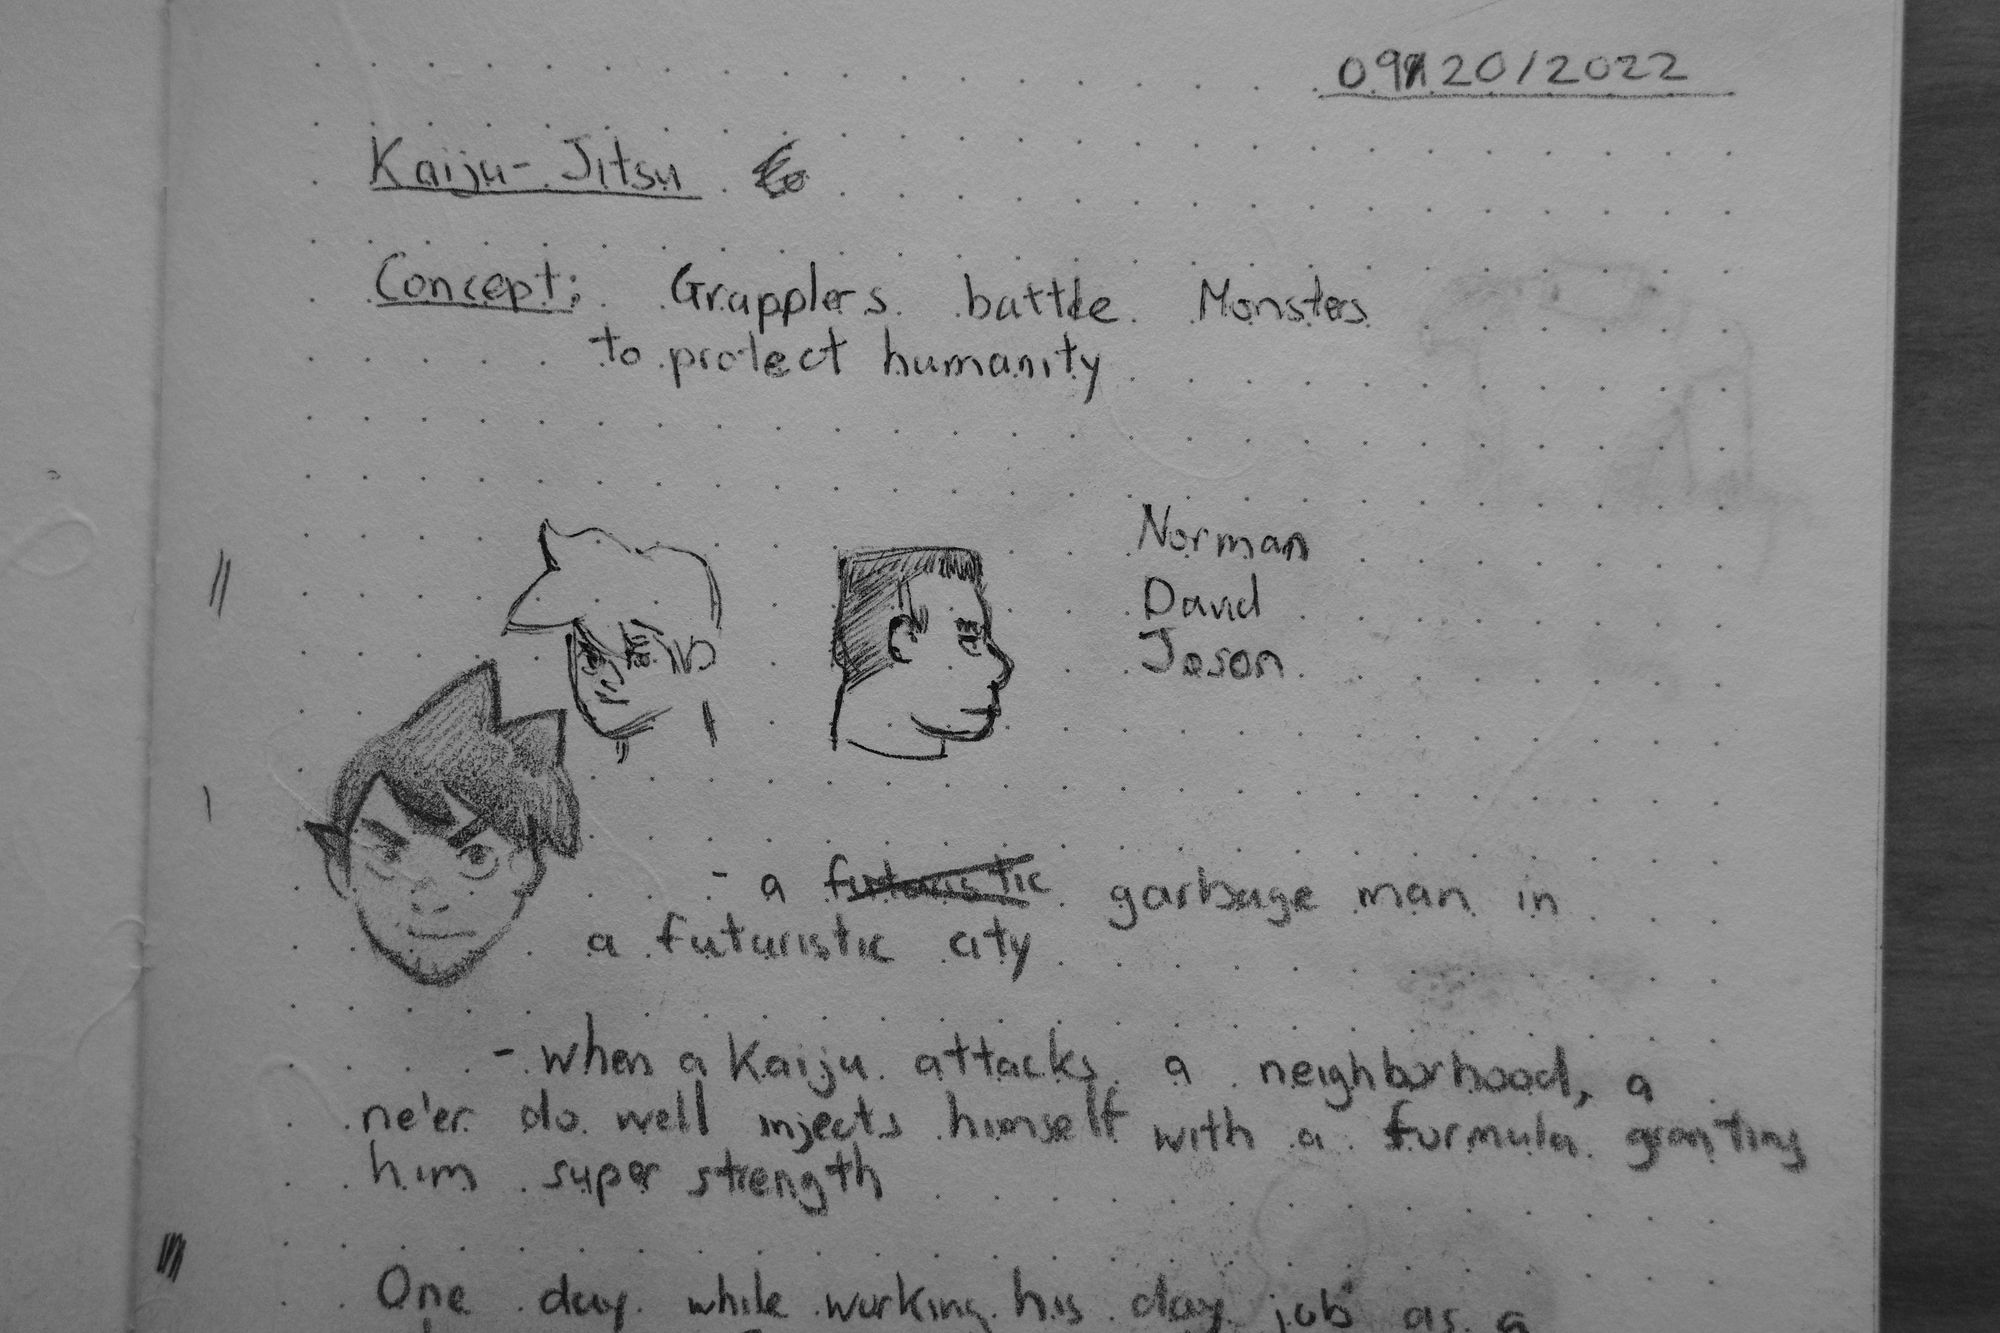 09/20/2022
Kaiju-Jitsu
Concept: Grapplers battle Monsters
to protect humanity
Norman
David
Jason
- a futuristic garbage man in
a futuristic city
- when a Kaiju attacks a neighborhood, a
ne'er do well injects himself with a formula granting
him super strength
One day while working his day job as a